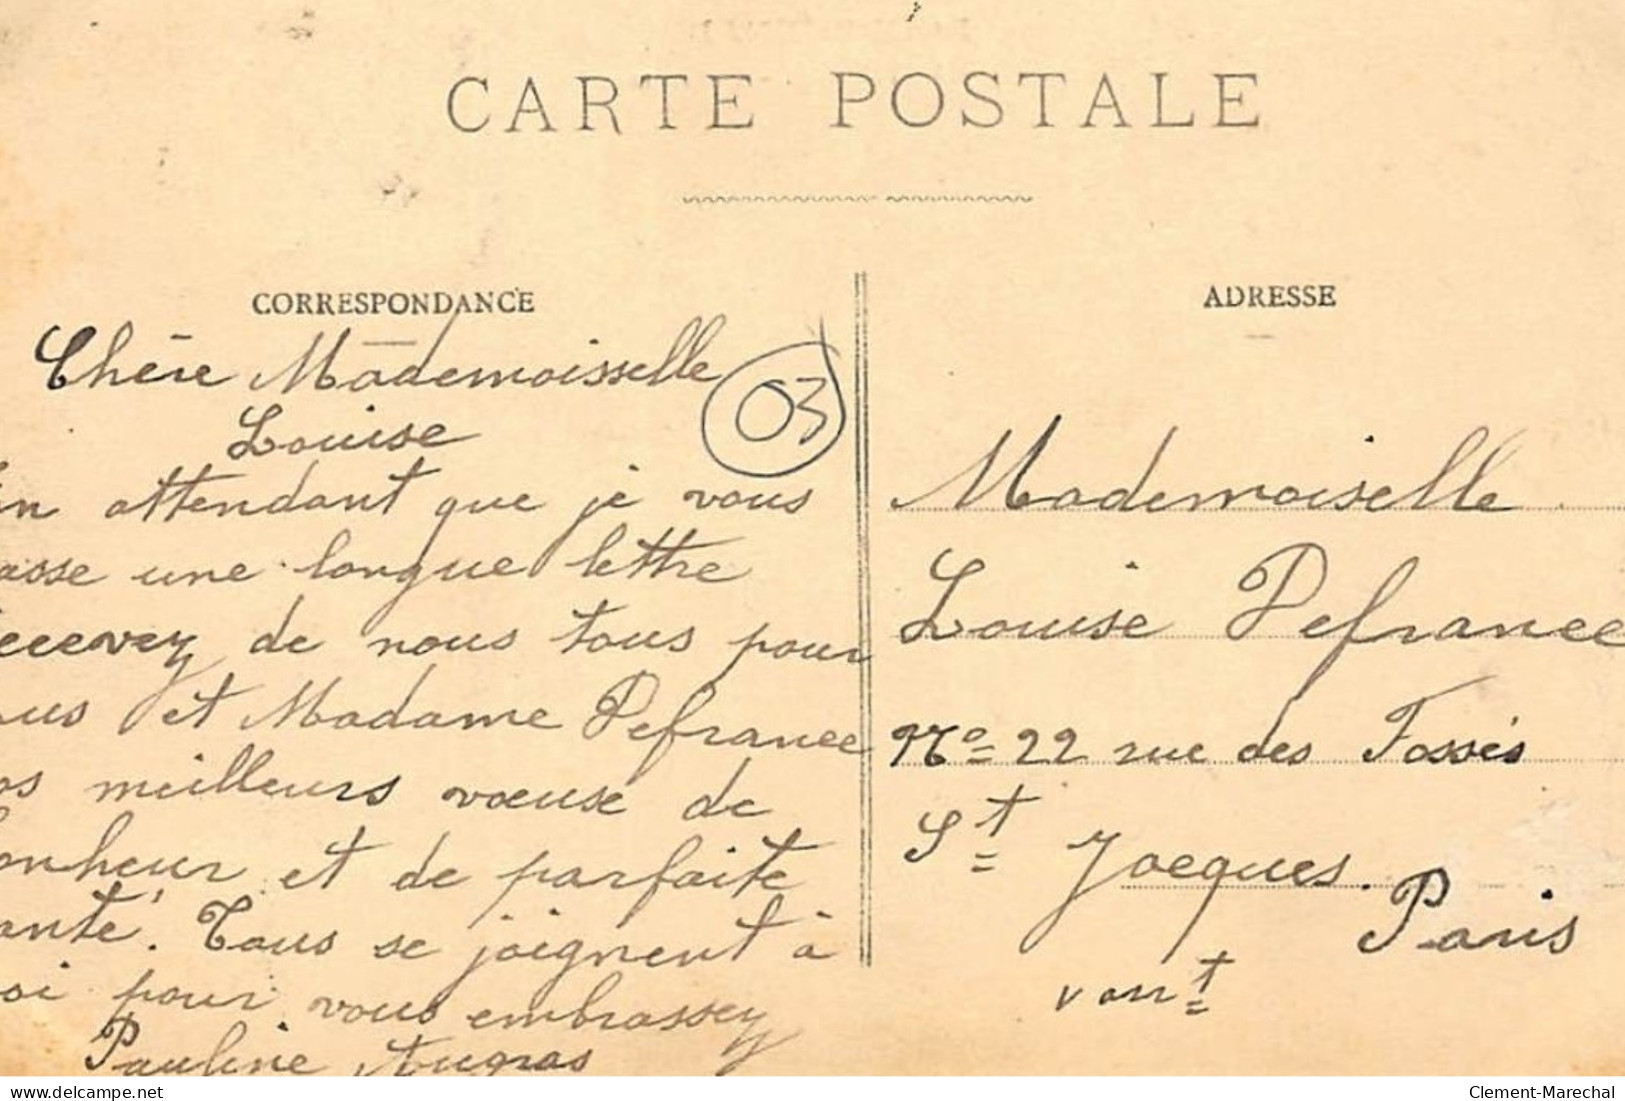 CARTE POSTALE
CORRESPONDANCE
Chère Mademoisselle
Louise
03
in attendant que je vous
asse une longue lettre
ecevez de nous tous pour
us et Madame Pefrance
os meilleurs vœuse de
onheur et de parfaite
anté. Tous se joignent à
oi pour vous embrassez
Pauline Augras
ADRESSE
Mademoiselle
Louise Pefrance
No 22 rue des Fossés
St Jacques.
Paris
vant
delcampe.net
Clement-Marechal